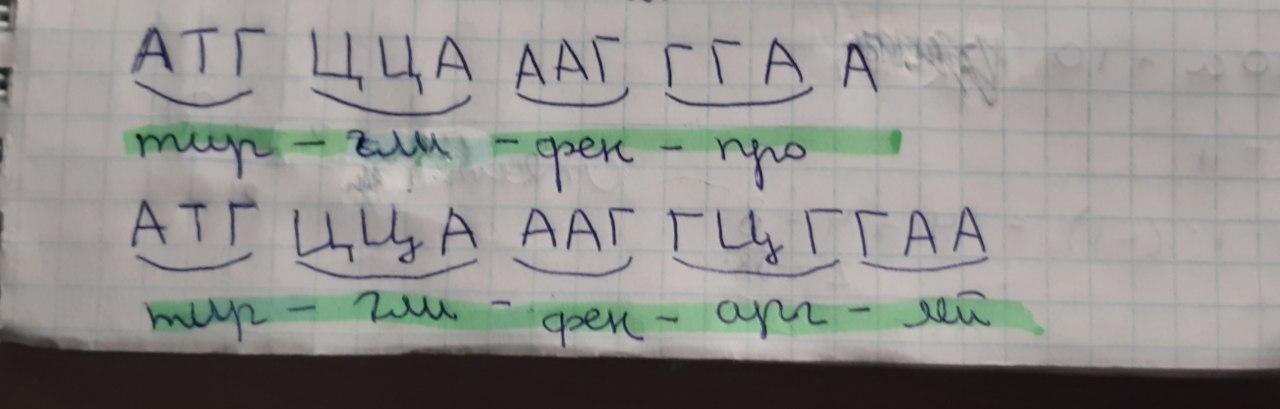 АТГ ЦЦА ААГ ГГА А
тир - гли - фен - про
АТГ ЦЦА ААГ ГЦГ ГАА
тир - гли - фен - арг - лей